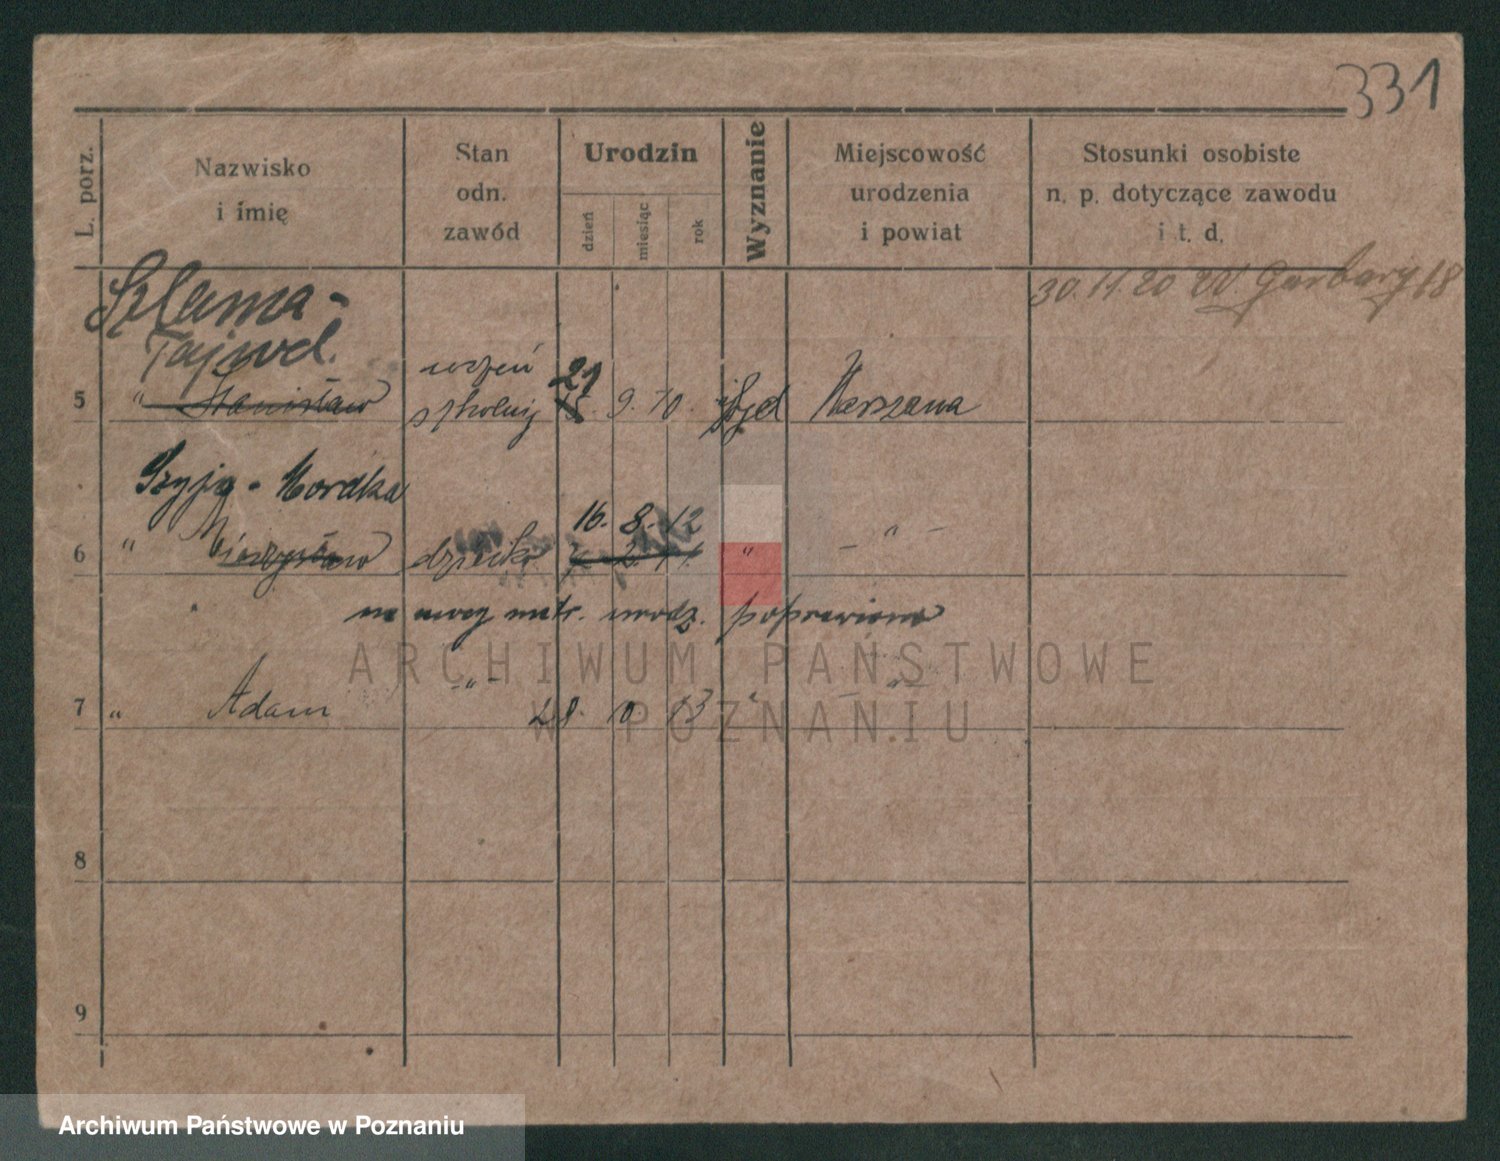 331
L. porz.
Nazwisko
i imię
Stan
odn.
zawód
Urodzin
dzień
miesiąc
rok
Wyznanie
Miejscowość
urodzenia
i powiat
Stosunki osobiste
n. p. dotyczące zawodu
i t. d.
30.11.20 Garbary 18
Szlama-
Fajwel.
uczeń
5 " Stanisław szkolny 21 15. 9. 10 żyd Warszawa
Szyja - Mordka
16. 8. 12
6 " Mieczysław dziecko 7. 2. 11. " - " -
na mocy metr. urodz. poprawiono
7 " Adam - " - 28. 10 13 " - " -
8
9
ARCHIWUM PAŃSTWOWE
W POZNANIU
Archiwum Państwowe w Poznaniu